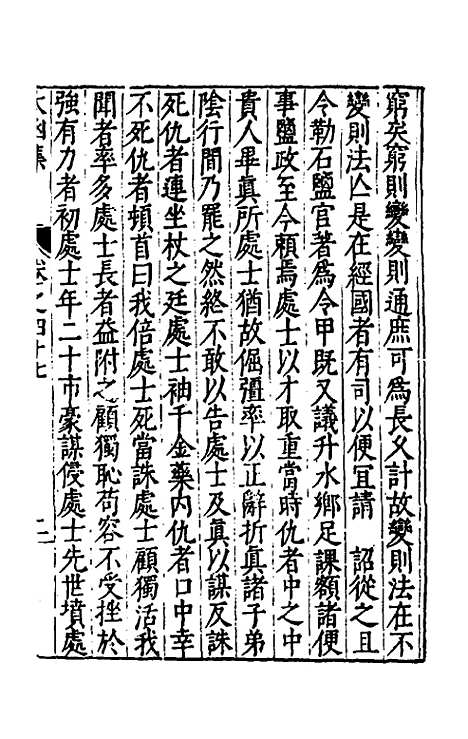 窮矣窮則變變則通庶可爲長乆計故變則法在不
變則法亾是在經國者有司以便冝請　詔從之且
令勒石鹽官著爲令甲既又議升水鄉足課額諸便
事鹽政至今頼焉處士以才取重當時仇者中之中
貴人畢眞所處士猶故倔彊率以正辭折眞諸子弟
陰行間乃罷之然終不敢以告處士及眞以謀反誅
死仇者連坐杖之廷處士袖千金藥内仇者口中幸
不死仇者頓首曰我倍處士死當誅處士顧獨活我
聞者率多處士長者益附之顧獨恥苟容不受挫於
強有力者初處士年二十市豪謀侵處士先世墳處
太函集　卷之四十七　二